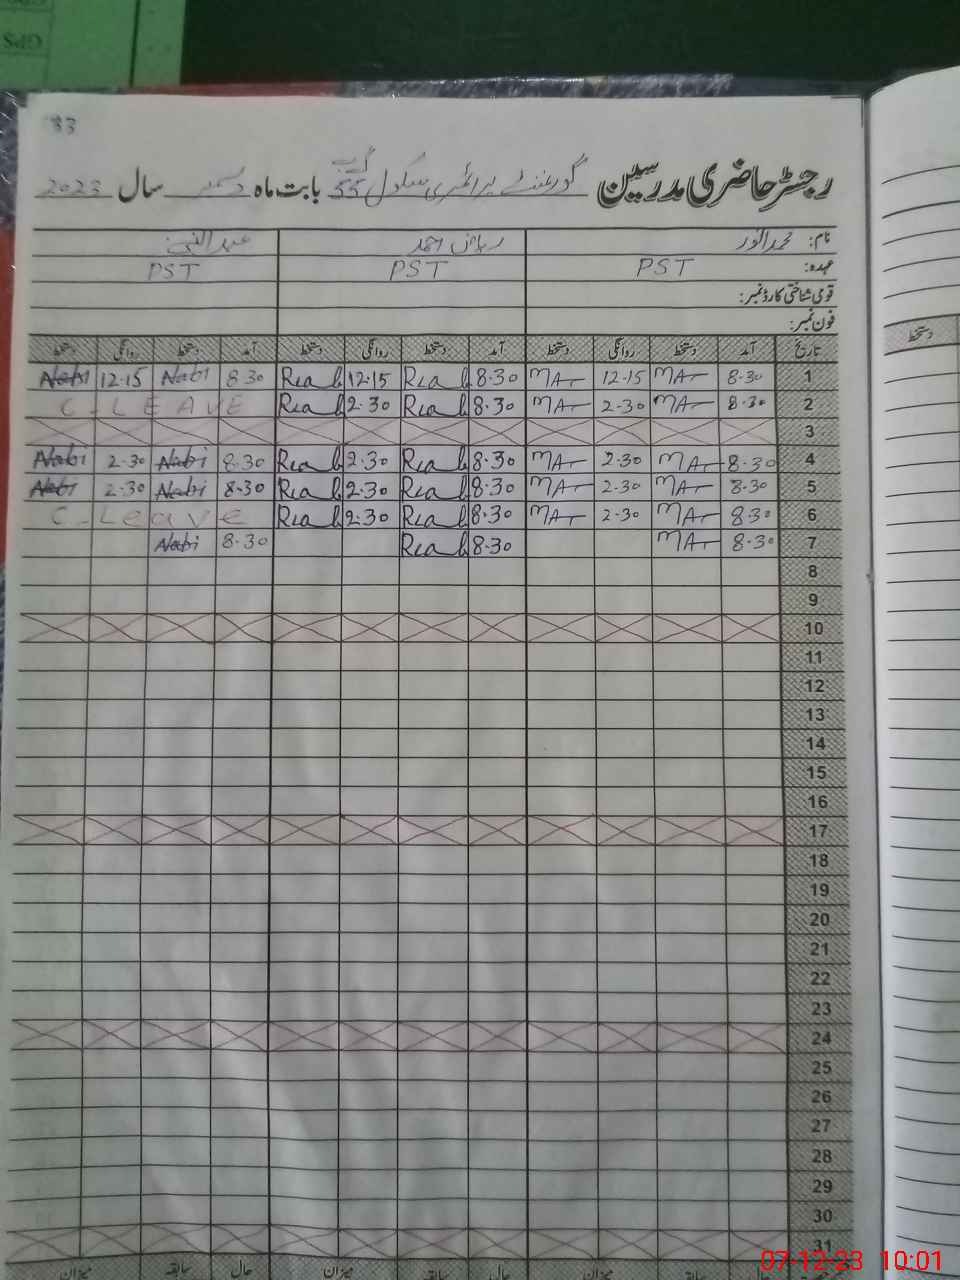 GPS
83
رجسٹر حاضری مدرسین گورنمنٹ پرائمری سکول 55 بابت ماہ دسمبر سال 2023
نام: محمد انور ریاض احمد عبدالنبی
عہدہ: PST PST PST
قومی شناختی کارڈ نمبر:
فون نمبر:
تاریخ آمد دستخط روانگی دستخط آمد دستخط روانگی دستخط آمد دستخط روانگی دستخط
1 8·30 MAr 12·15 MAr 8·30 Riab 12·15 Riab 8·30 Nabi 12·15 Nabi
2 8·30 MAr 2·30 MAr 8·30 Riab 2·30 Riab C-LEAVE
3
4 8·30 MAr 2·30 MAr 8·30 Riab 2·30 Riab 8·30 Nabi 2·30 Nabi
5 8·30 MAr 2·30 MAr 8·30 Riab 2·30 Riab 8·30 Nabi 2·30 Nabi
6 8·30 MAr 2·30 MAr 8·30 Riab 2·30 Riab C-Leave
7 8·30 MAr 8·30 Riab 8·30 Nabi
8
9
10
11
12
13
14
15
16
17
18
19
20
21
22
23
24
25
26
27
28
29
30
31
میزان سابقہ حال میزان سابقہ حال میزان
دستخط
07-12-23 10:01